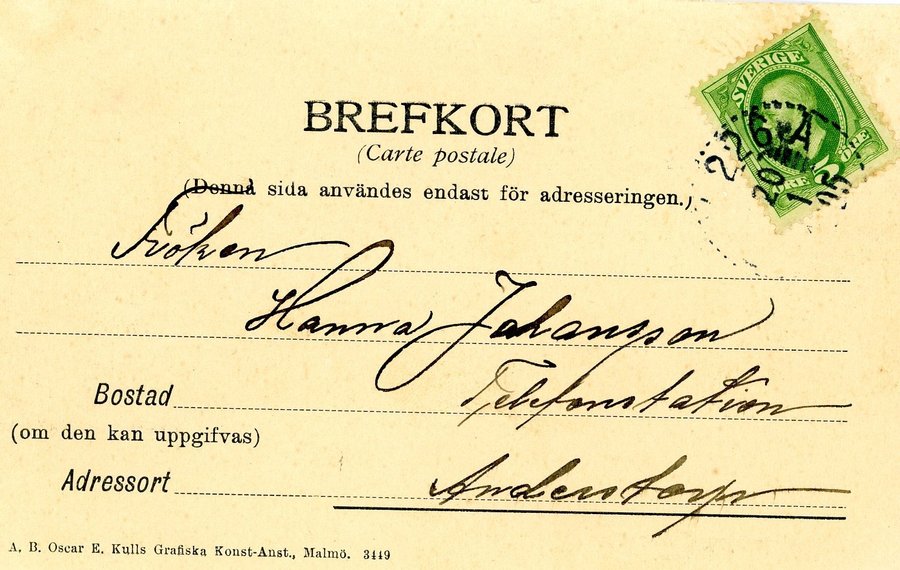 SVERIGE
BREFKORT
(Carte postale)
(Denna sida användes endast för adresseringen.)
Fröken
Hanna Johansson
Bostad Telefonstation
(om den kan uppgifvas)
Adressort Anderstorp
A. B. Oscar E. Kulls Grafiska Konst-Anst., Malmö. 3449